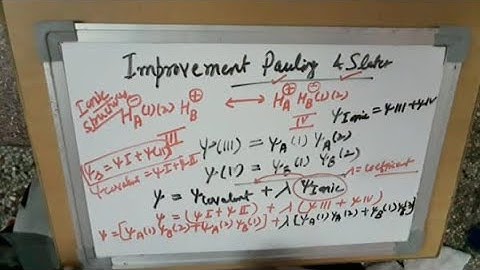 Improvement Pauling & Slater
Ionic
Structures
H_A^⊖(1)(2) H_B^⊕ ⟷ H_A^⊕ H_B^⊖(1)(2)
III
IV
ψ Ionic = ψIII + ψIV
ψ(III) = ψA(1) ψA(2)
ψ covalent = ψI + ψII
ψB(1) ψB(2)
λ = coefficient
ψ = ψcovalent + λ(ψIonic)
ψ = (ψI + ψII) + λ(ψIII + ψIV)
ψ = [ψA(1)ψB(2) + ψA(2)ψB(1)] + λ[ψA(1)ψA(2) + ψB(1)ψB(2)]